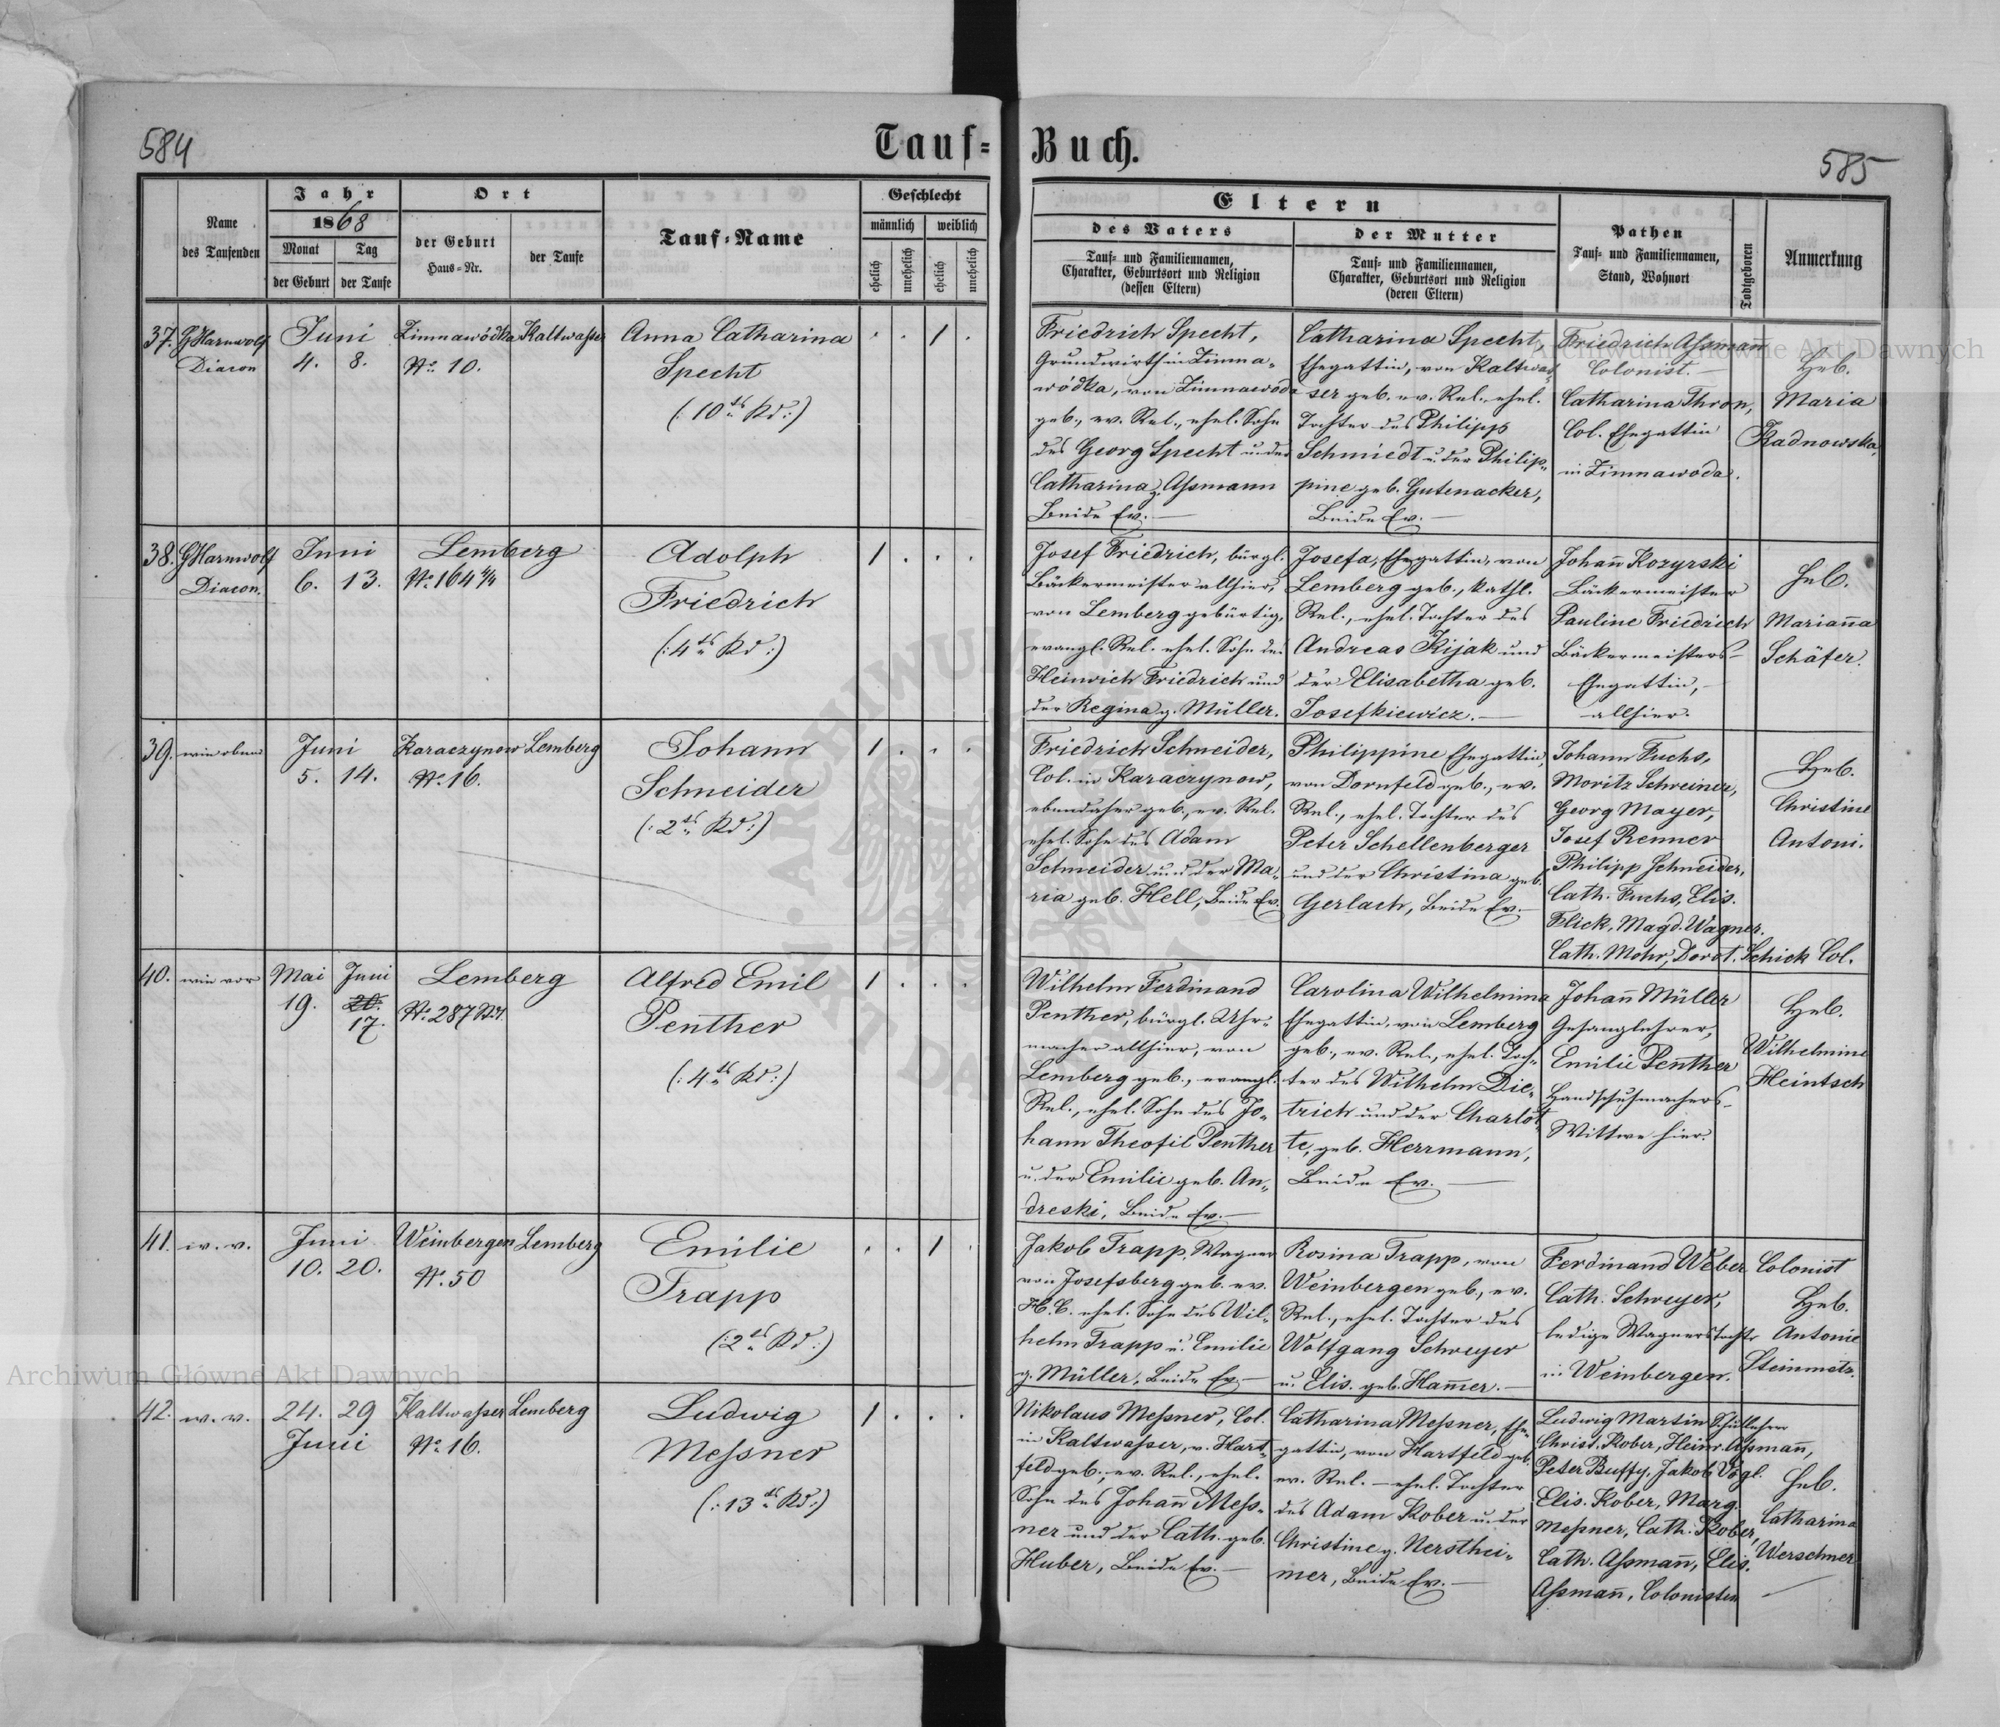 584
Tauf=
Buch.
585
Name
des Taufenden
Jahr
1868
Monat
der Geburt
Tag
der Taufe
Ort
der Geburt
Haus=Nr.
der Taufe
Tauf=Name
Geschlecht
männlich
weiblich
ehelich
unehelich
ehelich
unehelich
Eltern
des Vaters
Tauf= und Familiennamen,
Charakter, Geburtsort und Religion
(dessen Eltern)
der Mutter
Tauf= und Familiennamen,
Charakter, Geburtsort und Religion
(deren Eltern)
Pathen
Tauf= und Familiennamen,
Stand, Wohnort
Todtgeboren
Anmerkung
37.
G Harnwolf
Diacon
Juni
4. 8.
Zimnawódka
No 10.
Kaltwasser
Anna Catharina
Specht
(: 10tes Kd :)
1
Friedrich Specht,
Grundwirth in Zimna-
wódka, von Zimnawoda
geb., ev. Rel., ehel. Sohn
des Georg Specht u. der
Catharina g. Assmann
Beide Ev. —
Catharina Specht,
Ehegattin, von Kaltwas-
ser geb. ev. Rel., ehel.
Tochter des Philipp
Schmiedt u. der Philip-
pine geb. Gutenacker,
Beide Ev. —
Friedrich Assmann
Colonist. —
Catharina Thron,
Col. Ehegattin
in Zimnawoda.
Heb.
Maria
Radnowska.
38.
G Harnwolf
Diacon.
Juni
6. 13.
Lemberg
No 164 4/4
Adolph
Friedrich
(: 4tes Kd :)
1
Josef Friedrich, bürgl.
Bäckermeister allhier,
von Lemberg gebürtig,
evangl. Rel. ehel. Sohn des
Heinrich Friedrich und
der Regina g. Müller.
Josefa, Ehegattin, von
Lemberg geb., kathl.
Rel., ehel. Tochter des
Andreas Kijak und
der Elisabetha geb.
Josefkiewicz. —
Johañ Kozyrski
Bäckermeister
Pauline Friedrich
Bäckermeisters-
Ehegattin, —
allhier.
Heb.
Mariaña
Schäfer.
39.
wie oben
Juni
5. 14.
Karaczynow
No 16.
Lemberg
Johann
Schneider
(: 2tes Kd :)
1
Friedrich Schneider,
Col. in Karaczynow,
ebendaher geb., ev. Rel.
ehel. Sohn des Adam
Schneider und der Ma-
ria geb. Hell, Beide Ev.
Philippine Ehegattin,
von Dornfeld geb., ev.
Rel., ehel. Tochter des
Peter Schellenberger
und der Christina geb.
Gerlach, Beide Ev. —
Johann Fuchs,
Moritz Schreiner,
Georg Mayer,
Josef Renner
Philipp Schneider,
Cath. Fuchs, Elis.
Flick, Magd. Wagner.
Cath. Mohr, Dorot. Schick Col.
Heb.
Christine
Antoni.
40.
wie vor
Mai Juni
19. 20.
17.
Lemberg
No 287
Alfred Emil
Penther
(: 4tes Kd :)
1
Wilhelm Ferdinand
Penther, bürgl. Uhr-
macher allhier, von
Lemberg geb., evangl.
Rel., ehel. Sohn des Jo-
hann Theofil Penther
u. der Emilie geb. An-
dreski, Beide Ev. —
Carolina Wilhelmina
Ehegattin, von Lemberg
geb., ev. Rel., ehel. Toch-
ter des Wilhelm Die-
trich und der Charlot-
te, geb. Herrmann,
Beide Ev. —
Johañ Müller
Gesanglehrer,
Emilie Penther
Handschuhmachers-
Wittwe hier.
Heb.
Wilhelmine
Heintsch
41.
w. v.
Juni
10. 20.
Weinbergen
No 50
Lemberg
Emilie
Trapp
(: 2tes Kd :)
1
Jakob Trapp, Wagner
von Josefsberg geb. ev.
H. C. ehel. Sohn des Wil-
helm Trapp u. Emilie
g. Müller, Beide Ev. —
Rosina Trapp, von
Weinbergen geb., ev.
Rel., ehel. Tochter des
Wolfgang Schreyer
u. Elis. geb. Ham̃er. —
Ferdinand Weber Colonist
Cath. Schreyer,
ledige Wagnerstochtr
in Weinbergen.
Heb.
Antonie
Steinmetz.
42.
w. v.
24. 29
Juni
Kaltwasser
No 16.
Lemberg
Ludwig
Messner
(: 13tes Kd :)
1
Nikolaus Messner, Col.
in Kaltwasser, v. Hart-
feld geb., ev. Rel., ehel.
Sohn des Johañ Mess-
ner und der Cath. geb.
Huber, Beide Ev. —
Catharina Messner, Ehe-
gattin, von Hartfeld geb.
ev. Rel. — ehel. Tochter
des Adam Kober u. der
Christine g. Nersthei-
mer, Beide Ev. —
Ludwig Martin Schullehrer
Christ. Kober, Heinr. Assmañ,
Peter Buffy, Jakob Vogl.
Elis. Kober, Marg.
Messner, Cath. Kober,
Cath. Assmañ, Elis.
Assmañ, Colonisten
Heb.
Catharina
Werschner
Archiwum Główne Akt Dawnych
Archiwum Główne Akt Dawnych